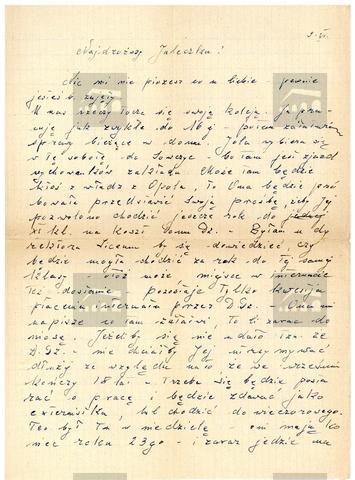 9.VI.
Najdroższy Juleczku!
Nic mi nie piszesz co u Ciebie - pewnie
jesteś b. zajęty.
U nas rzeczy toczą się swoją koleją. Ja pracuję
jak zwykle do 16 g - potem załatwiam
sprawy bieżące w domu. Jola wybiera się
w tę sobotę do - bo tam jest zjazd
wychowanków zakładu. Może tam będzie
ktoś z władz z Opola, to Ona będzie pró
bowała przedstawić swoją prośbę, żeby Jej
pozwolono chodzić jeszcze rok do
XI kl. na koszt Domu Dz. - Byłam u dy
rektora Liceum by się dowiedzieć, czy
będzie mogła chodzić za rok do tej samej
klasy - otóż może i miejsce w internacie
też dostanie - pozostaje tylko kwestja
płacenia internatu przez D.Dz. - Ona
napisze co tam załatwi, to Ci zaraz do
niosę. Jeżeli by się nie udało tzn. że
D.Dz. - nie chciałby Jej utrzymywać
dłużej ze względu na to że we wrześniu
kończy 18 lat - Trzeba się będzie posta
rać o pracę i będzie zdawać jako
eksternistka, lub chodzić do wieczorowego.
Teo był tu w niedzielę - oni mają ko
niec roku 23go - i zaraz jedzie na